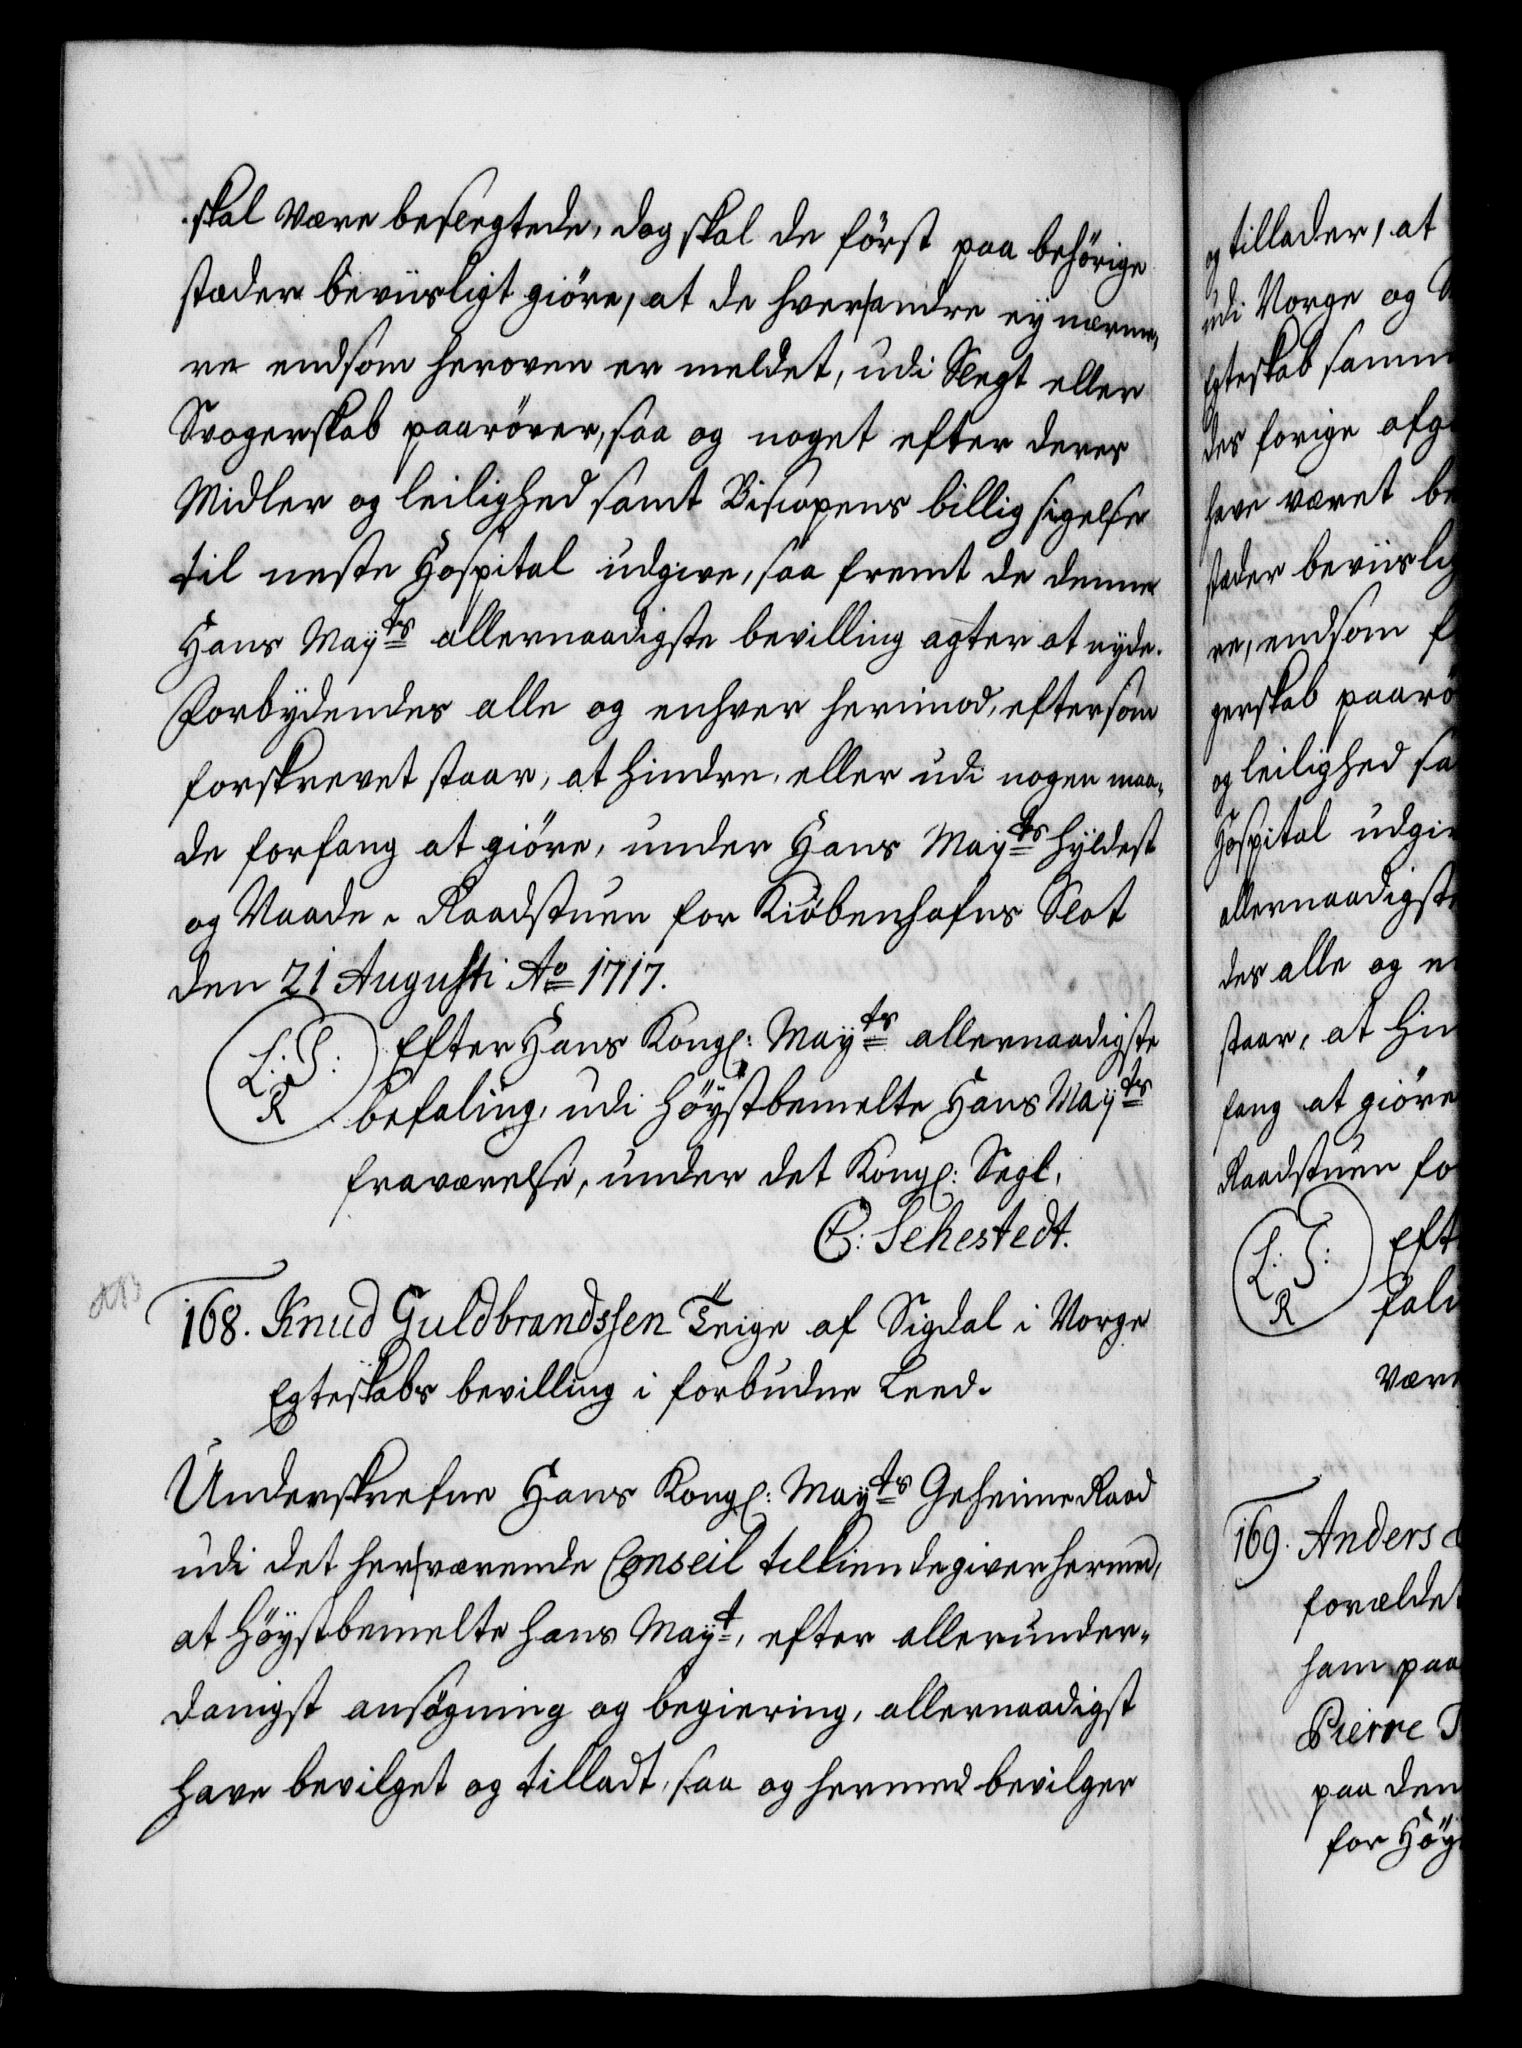 skal være beslegtede, dog skal de först paa behörige
stæder beviisligt giöre, at de hverandre ey nærme,
re endsom heroven er meldet, udi Slegt eller
Svogerskab paarörer, saa og noget efter deres
Midler og leilighed samt Biscopens billig sigelse
til neste Hospital udgive, saa fremt de denne
Hans Mayts allernaadigste bevilling agter at nyde.
Forbydendes alle og enhver herimod, eftersom
forskrevet staar, at hindre, eller udi nogen maa,
de forfang at giöre, under Hans Mayts Hyldest
og Naade. Raadstuen for Kiöbenhafns Slot
den 21 Augusti Ao 1717.
L: S:
R
Efter Hans Kongl: Mayts allernaadigste
befaling, udi Höystbemelte Hans Mayts
fraværelse, under det Kongl: Segl.
C: Sehestedt.
168. Knud Guldbrandssen Teige af Sigdal i Norge
Egteskabs bevilling i forbudne Leed.
Underskrefne Hans Kongl: Mayts Geheime Raad
udi det herværende Conseil tilkiendegiver hermed,
at Höystbemelte Hans Mayt, efter allerunder-
danigst ansögning og begiering, allernaadigst
have bevilget og tilladt, saa og hermed bevilger
og tillader, at
udi Norge og
Egteskab samm
des forige afg
have været be
stæder beviislig
re, endsom f
gerskab paarö
og leilighed sa
Hospital udgi
allernaadigste
des alle og e
staar, at hin
fang at giöre
Raadstuen fo
L: S:
R
Eft
fali
være
169. Anders
forældet
ham paa
Pierre
paa den
for Höy